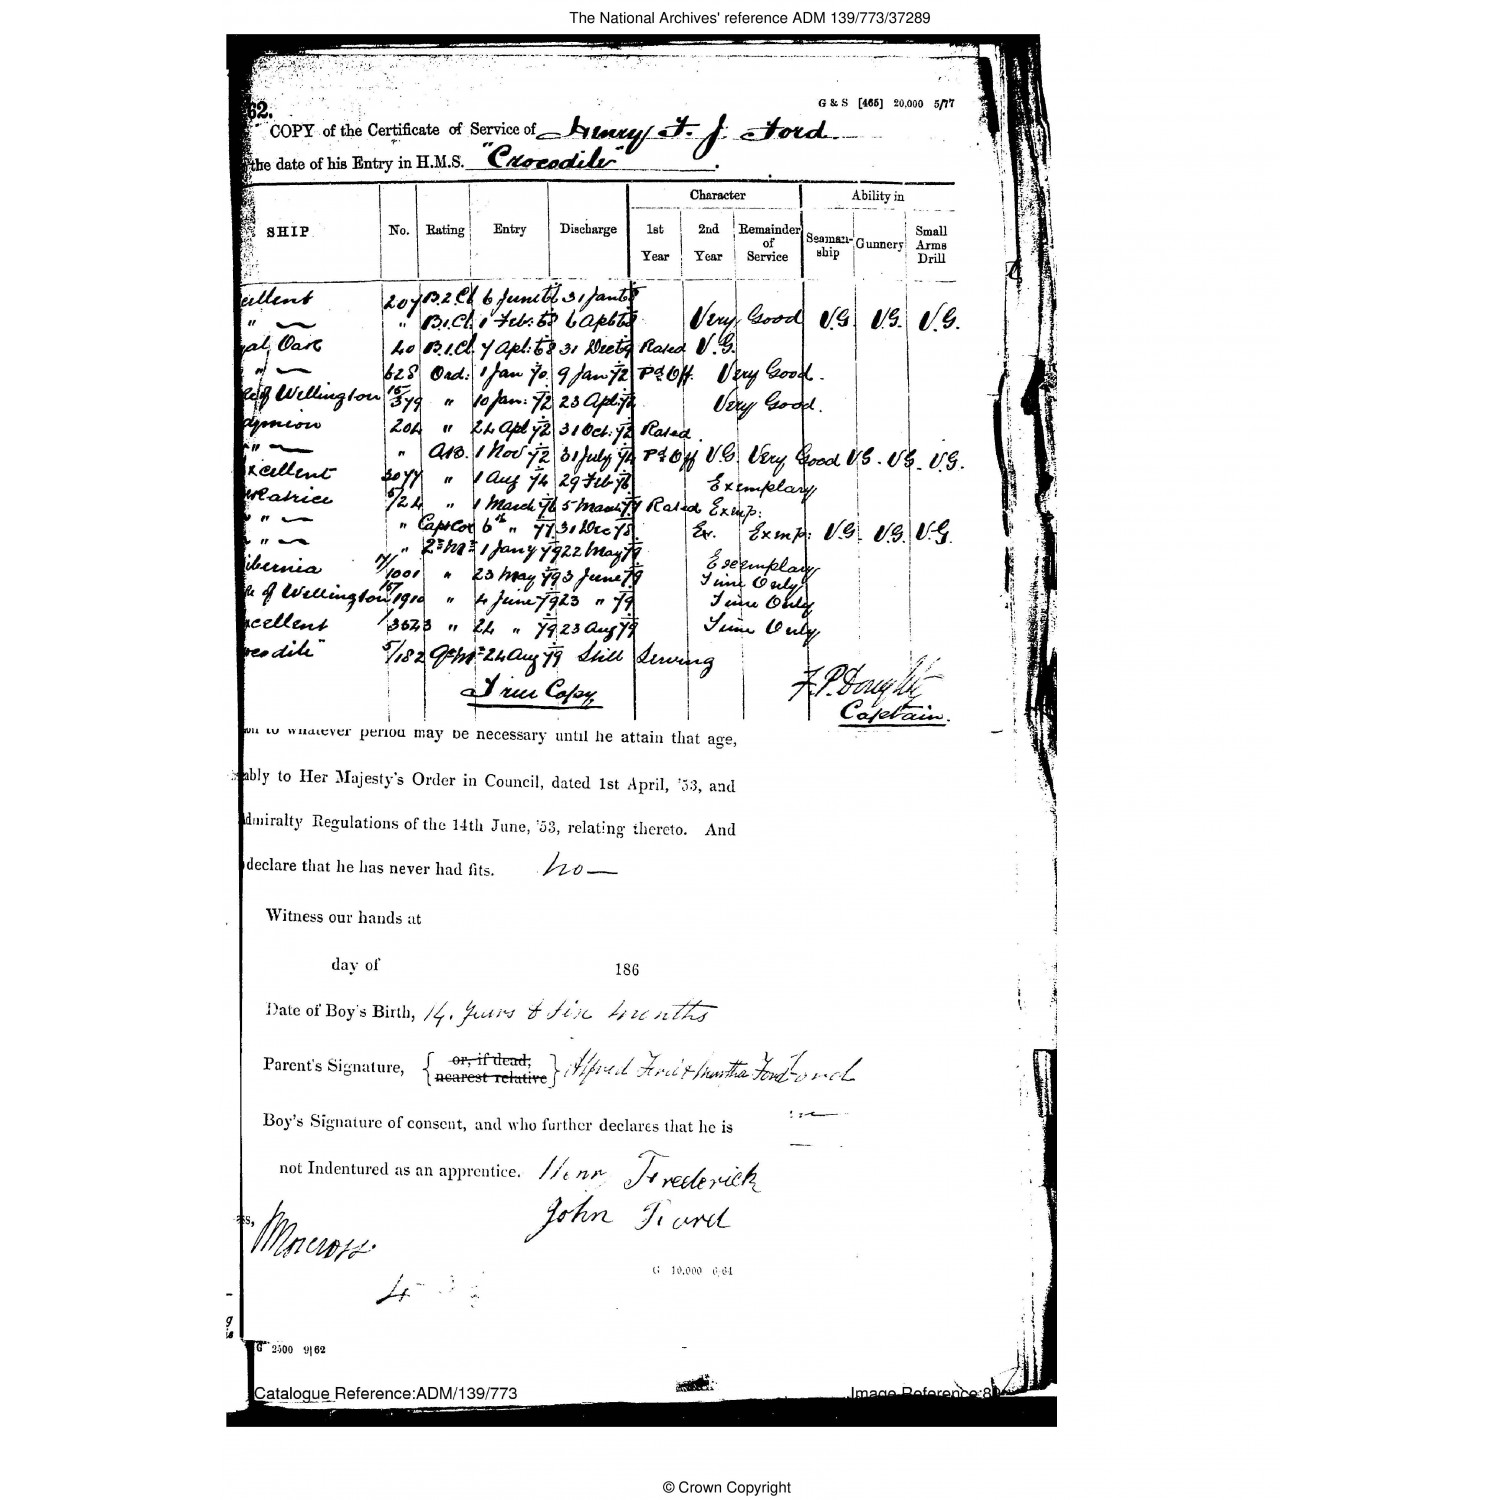 The National Archives' reference ADM 139/773/37289
62.
G & S [465] 20,000 5/77
COPY of the Certificate of Service of Henry F. J. Ford
the date of his Entry in H.M.S. "Crocodile".
Character Ability in
SHIP No. Rating Entry Discharge 1st Year 2nd Year Remainder of Service Seaman-ship Gunnery Small Arms Drill
cellent 207 B.2.Cl 6 June 66 31 Jan 68
" " B.1.Cl. 1 Feb: 68 6 Apl 68 Very Good V.G. V.G. V.G.
yal Oak 40 B.1.Cl. 7 Apl: 68 31 Dec 69 Rated V.G.
" 628 Ord: 1 Jan 70 9 Jan 72 Pd Off. Very Good.
ke of Wellington 15/379 " 10 Jan: 72 23 Apl 72 Very Good.
dymion 204 " 24 Apl 72 31 Oct. 72 Rated
" " A.B. 1 Nov 72 31 July 74 Pd Off V.G. Very Good V.G. V.G. V.G.
xcellent 3077 " 1 Aug 74 29 Feb 76 Exemplary
5/24 " 1 March 76 5 March 77 Rated Exemp:
" " Capt Cox 6th " 77 31 Dec 78 Ex. Exemp: V.G. V.G. V.G.
" " 2nd Mte 1 Jany 79 22 May 79
ibernia 17/1001 " 23 May 79 3 June 79 Exemplary Time Only
ke of Wellington 15/1910 " 4 June 79 23 " 79 Time Only
xcellent 1/3523 " 24 " 79 23 Aug 79 Time Only
rocodile" 5/182 Qr Mr 24 Aug 79 Still Serving
True Copy
F. P. Doughty
Captain.
on to whatever period may be necessary until he attain that age,
ably to Her Majesty's Order in Council, dated 1st April, '53, and
dmiralty Regulations of the 14th June, '53, relating thereto. And
declare that he has never had fits. no —
Witness our hands at
day of 186
Date of Boy's Birth, 14. years & six months
Parent's Signature, { or, if dead, nearest relative } Alfred Ford & Martha Ford
Boy's Signature of consent, and who further declares that he is
not Indentured as an apprentice. Henry Frederick
John Ford
ss,
G 10,000 6/64
G 2500 9|62
Catalogue Reference:ADM/139/773 Image Reference:8
© Crown Copyright